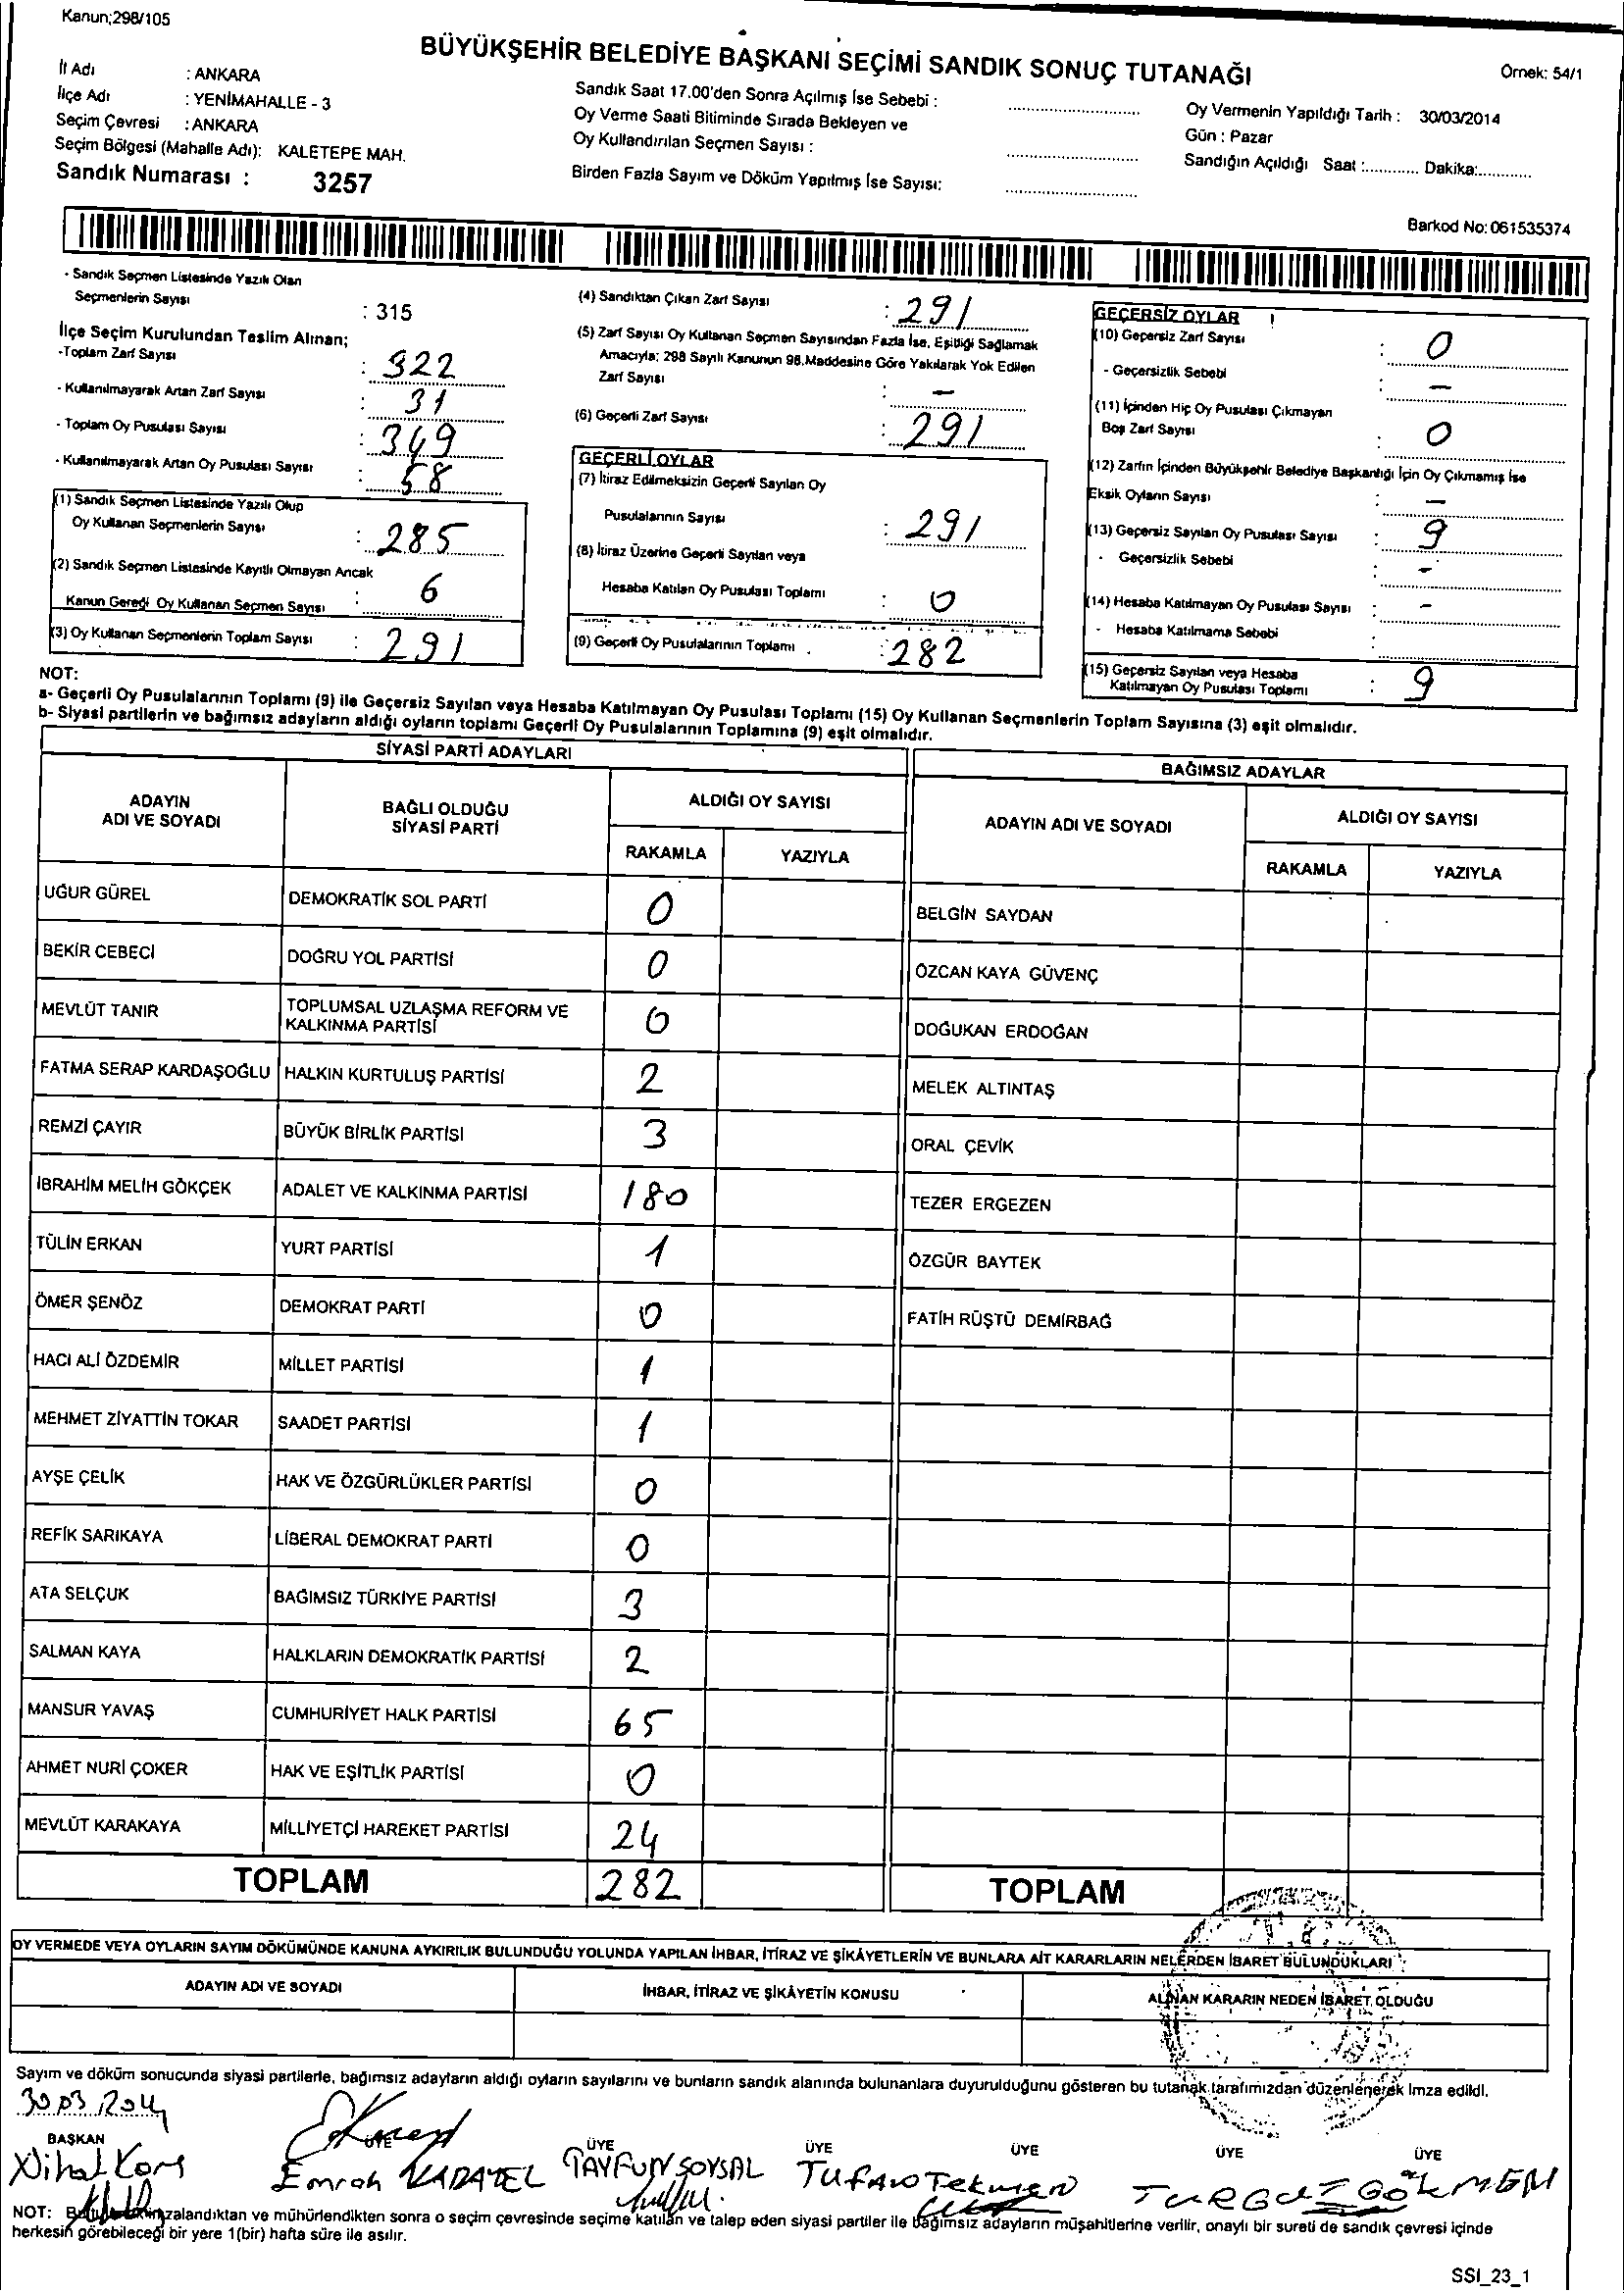 Kanun;298/105
BÜYÜKŞEHİR BELEDİYE BAŞKANI SEÇİMİ SANDIK SONUÇ TUTANAĞI
Örnek: 54/1
İl Adı : ANKARA
İlçe Adı : YENİMAHALLE - 3
Seçim Çevresi : ANKARA
Seçim Bölgesi (Mahalle Adı): KALETEPE MAH.
Sandık Numarası : 3257
Sandık Saat 17.00'den Sonra Açılmış İse Sebebi :
Oy Verme Saati Bitiminde Sırada Bekleyen ve
Oy Kullandırılan Seçmen Sayısı :
Birden Fazla Sayım ve Döküm Yapılmış İse Sayısı:
Oy Vermenin Yapıldığı Tarih : 30/03/2014
Gün : Pazar
Sandığın Açıldığı Saat :............ Dakika:............
Barkod No: 061535374
- Sandık Seçmen Listesinde Yazılı Olan
Seçmenlerin Sayısı : 315
İlçe Seçim Kurulundan Teslim Alınan;
-Toplam Zarf Sayısı : 322
- Kullanılmayarak Artan Zarf Sayısı : 31
- Toplam Oy Pusulası Sayısı : 349
- Kullanılmayarak Artan Oy Pusulası Sayısı : 58
(1) Sandık Seçmen Listesinde Yazılı Olup
Oy Kullanan Seçmenlerin Sayısı : 285
(2) Sandık Seçmen Listesinde Kayıtlı Olmayan Ancak
Kanun Gereği Oy Kullanan Seçmen Sayısı : 6
(3) Oy Kullanan Seçmenlerin Toplam Sayısı : 291
(4) Sandıktan Çıkan Zarf Sayısı : 291
(5) Zarf Sayısı Oy Kullanan Seçmen Sayısından Fazla İse, Eşitliği Sağlamak
Amacıyla; 298 Sayılı Kanunun 98.Maddesine Göre Yakılarak Yok Edilen
Zarf Sayısı : -
(6) Geçerli Zarf Sayısı : 291
GEÇERLİ OYLAR
(7) İtiraz Edilmeksizin Geçerli Sayılan Oy
Pusulalarının Sayısı : 291
(8) İtiraz Üzerine Geçerli Sayılan veya
Hesaba Katılan Oy Pusulası Toplamı : 0
(9) Geçerli Oy Pusulalarının Toplamı : 282
GEÇERSİZ OYLAR
(10) Geçersiz Zarf Sayısı : 0
- Geçersizlik Sebebi : -
(11) İçinden Hiç Oy Pusulası Çıkmayan
Boş Zarf Sayısı : 0
(12) Zarfın İçinden Büyükşehir Belediye Başkanlığı İçin Oy Çıkmamış İse
Eksik Oyların Sayısı : -
(13) Geçersiz Sayılan Oy Pusulası Sayısı : 9
- Geçersizlik Sebebi : -
(14) Hesaba Katılmayan Oy Pusulası Sayısı : -
- Hesaba Katılmama Sebebi :
(15) Geçersiz Sayılan veya Hesaba
Katılmayan Oy Pusulası Toplamı : 9
NOT:
a- Geçerli Oy Pusulalarının Toplamı (9) ile Geçersiz Sayılan veya Hesaba Katılmayan Oy Pusulası Toplamı (15) Oy Kullanan Seçmenlerin Toplam Sayısına (3) eşit olmalıdır.
b- Siyasi partilerin ve bağımsız adayların aldığı oyların toplamı Geçerli Oy Pusulalarının Toplamına (9) eşit olmalıdır.
SİYASİ PARTİ ADAYLARI
ADAYIN ADI VE SOYADI
BAĞLI OLDUĞU SİYASİ PARTİ
ALDIĞI OY SAYISI
RAKAMLA YAZIYLA
UĞUR GÜREL DEMOKRATİK SOL PARTİ 0
BEKİR CEBECİ DOĞRU YOL PARTİSİ 0
MEVLÜT TANIR TOPLUMSAL UZLAŞMA REFORM VE KALKINMA PARTİSİ 0
FATMA SERAP KARDAŞOĞLU HALKIN KURTULUŞ PARTİSİ 2
REMZİ ÇAYIR BÜYÜK BİRLİK PARTİSİ 3
İBRAHİM MELİH GÖKÇEK ADALET VE KALKINMA PARTİSİ 180
TÜLİN ERKAN YURT PARTİSİ 1
ÖMER ŞENÖZ DEMOKRAT PARTİ 0
HACI ALİ ÖZDEMİR MİLLET PARTİSİ 1
MEHMET ZİYATTİN TOKAR SAADET PARTİSİ 1
AYŞE ÇELİK HAK VE ÖZGÜRLÜKLER PARTİSİ 0
REFİK SARIKAYA LİBERAL DEMOKRAT PARTİ 0
ATA SELÇUK BAĞIMSIZ TÜRKİYE PARTİSİ 3
SALMAN KAYA HALKLARIN DEMOKRATİK PARTİSİ 2
MANSUR YAVAŞ CUMHURİYET HALK PARTİSİ 65
AHMET NURİ ÇOKER HAK VE EŞİTLİK PARTİSİ 0
MEVLÜT KARAKAYA MİLLİYETÇİ HAREKET PARTİSİ 24
TOPLAM 282
BAĞIMSIZ ADAYLAR
ADAYIN ADI VE SOYADI
ALDIĞI OY SAYISI
RAKAMLA YAZIYLA
BELGİN SAYDAN
ÖZCAN KAYA GÜVENÇ
DOĞUKAN ERDOĞAN
MELEK ALTINTAŞ
ORAL ÇEVİK
TEZER ERGEZEN
ÖZGÜR BAYTEK
FATİH RÜŞTÜ DEMİRBAĞ
TOPLAM
OY VERMEDE VEYA OYLARIN SAYIM DÖKÜMÜNDE KANUNA AYKIRILIK BULUNDUĞU YOLUNDA YAPILAN İHBAR, İTİRAZ VE ŞİKÂYETLERİN VE BUNLARA AİT KARARLARIN NELERDEN İBARET BULUNDUKLARI
ADAYIN ADI VE SOYADI
İHBAR, İTİRAZ VE ŞİKÂYETİN KONUSU
ALINAN KARARIN NEDEN İBARET OLDUĞU
Sayım ve döküm sonucunda siyasi partilerle, bağımsız adayların aldığı oyların sayılarını ve bunların sandık alanında bulunanlara duyurulduğunu gösteren bu tutanak tarafımızdan düzenlenerek imza edildi.
30.03.2014
BAŞKAN ÜYE ÜYE ÜYE ÜYE ÜYE ÜYE
Nihat Emrah KARATEL TAYFUN SOYSAL TUFAN Tekmen TURGUT GÖKMEN
NOT: imzalandıktan ve mühürlendikten sonra o seçim çevresinde seçime katılan ve talep eden siyasi partiler ile bağımsız adayların müşahitlerine verilir, onaylı bir sureti de sandık çevresi içinde
herkesin görebileceği bir yere 1(bir) hafta süre ile asılır.
SSI_23_1